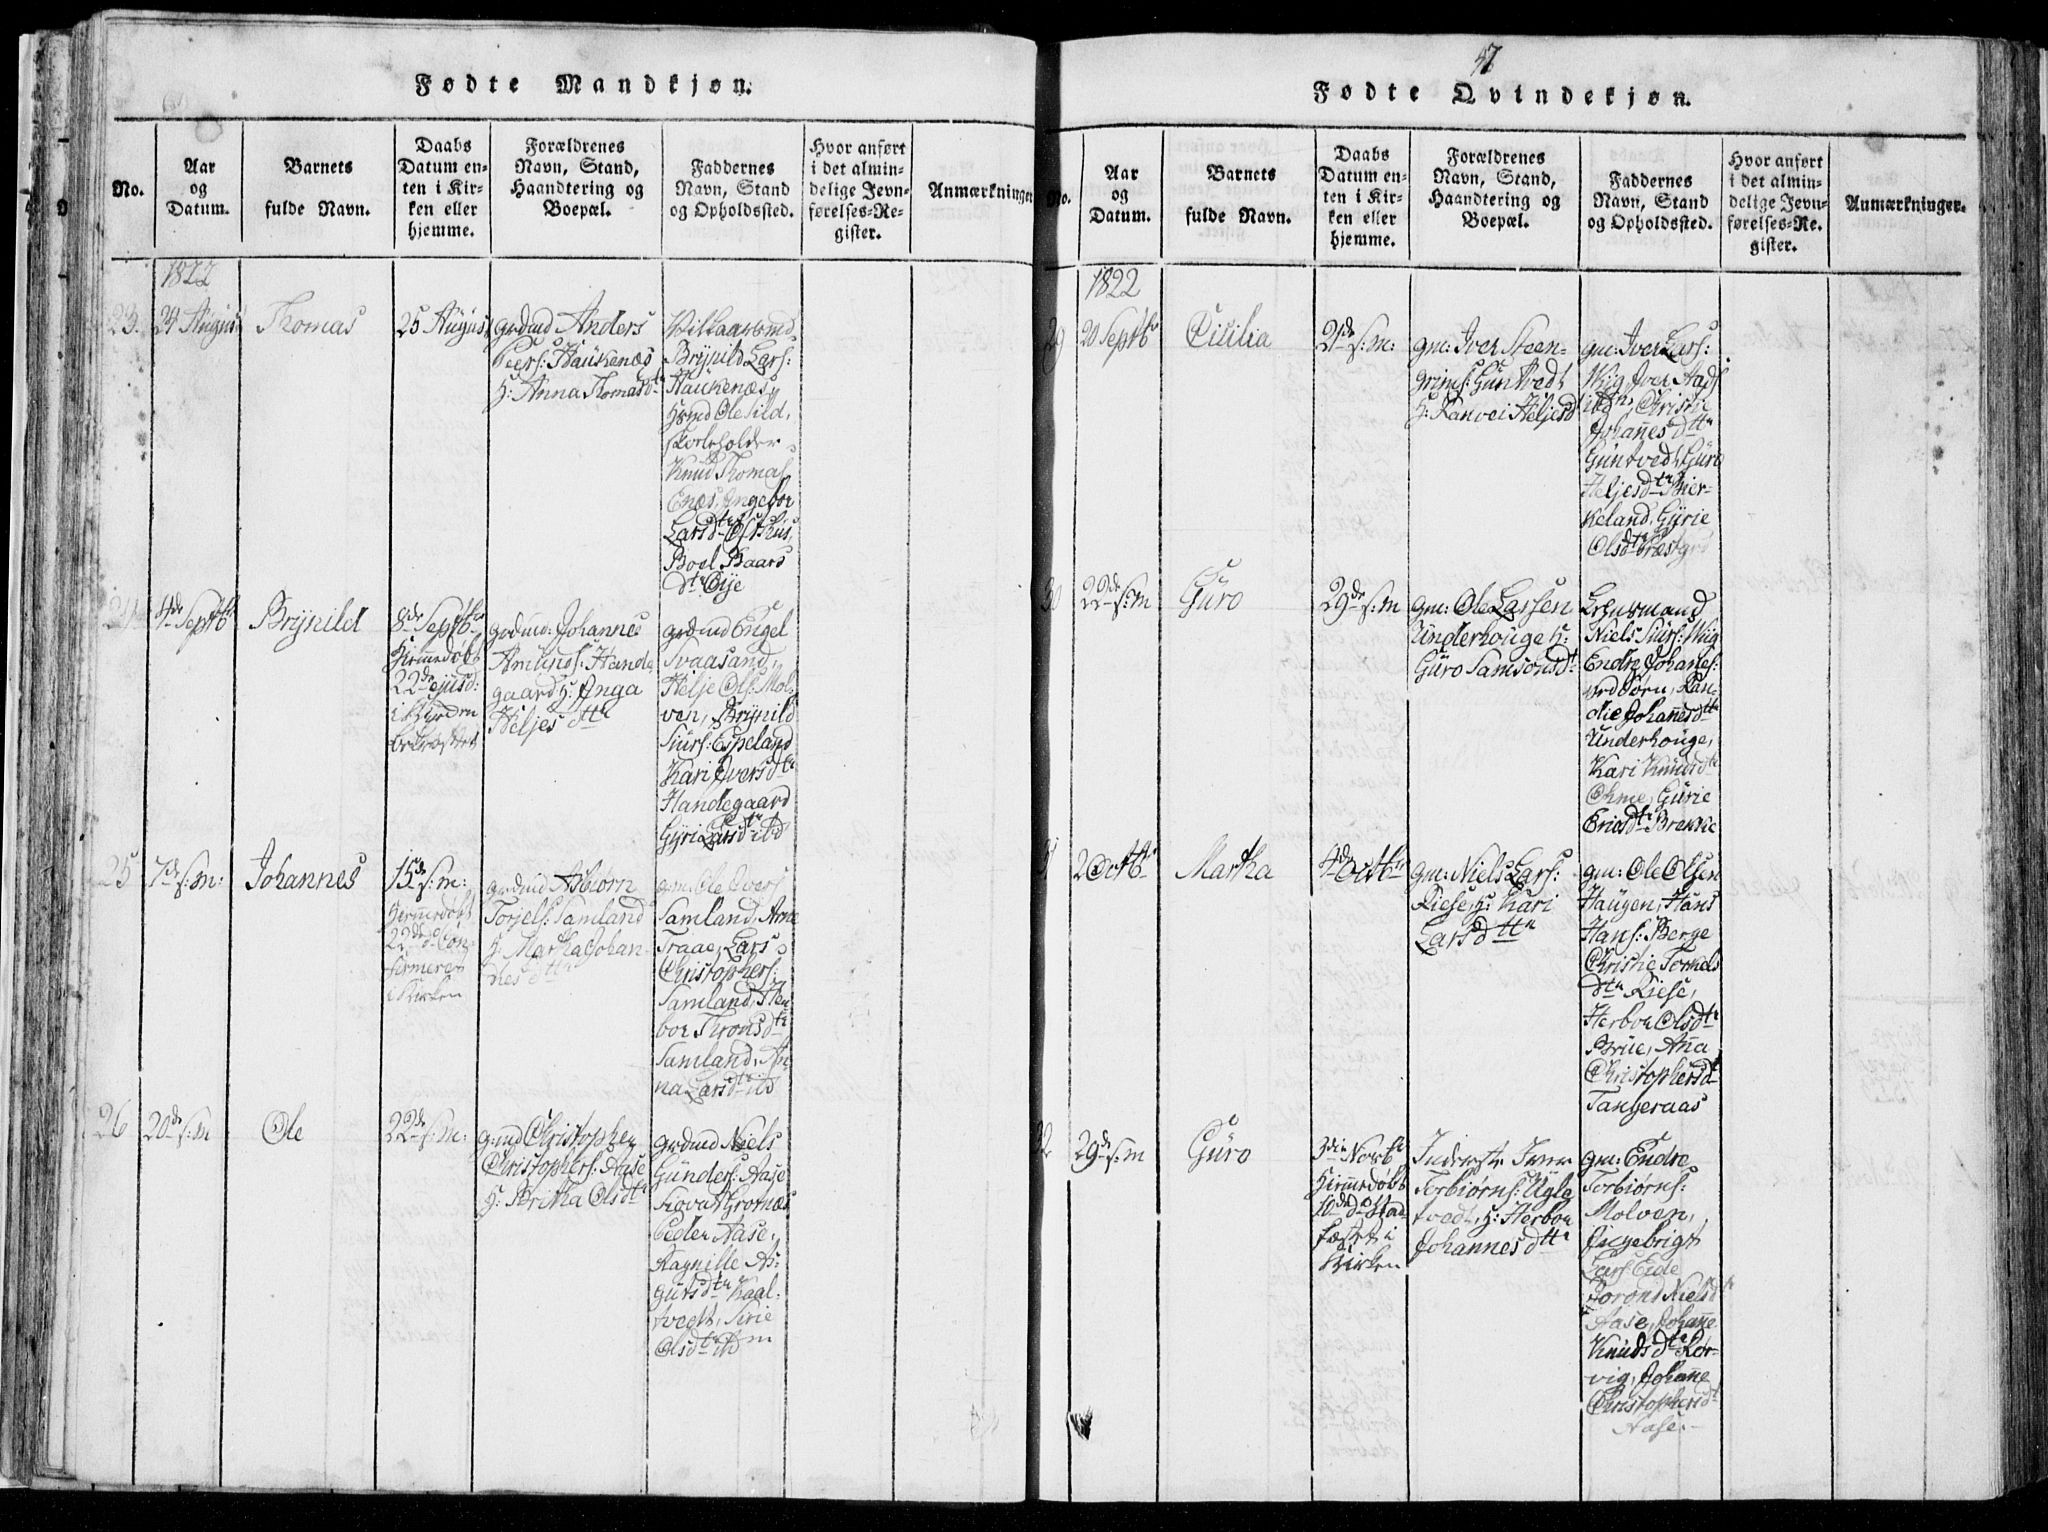 Fødte Mandkjøn.
No.
Aar
og
Datum.
Barnets
fulde Navn.
Daabs
Datum en-
ten i Kir-
ken eller
hjemme.
Forældrenes
Navn, Stand,
Haandtering og
Boepæl.
Faddernes
Navn, Stand
og Opholdssted.
Hvor anført
i det almin-
delige Jevn-
førelses-Re-
gister.
Anmærkninger
1822
23.
24 August
Thomas
25 August
grdmd Anders
Peers: Haukenæs
h: Anna Thomasdtr
Brÿnild Lars:
Haukenæs,
Knud Thomas
Enæs, Ingebor
Larsdtr Osthus,
Boel Baars
dtr Oÿe
24
4de Septbr
Brÿnild
8de Septbr
hiemedøbt
22de ejusd:
i Kirken
grdmd: Johannes
Amunds: Hande
gaard h: Inga
Heljes dtr
grdmd Engel
Svaasand,
Helje Ols: Mol-
ven, Brÿnild
Siurs: Espeland
Kari Iversdtr
Handegaard
Gÿri Larsdtr ibd
25
7de s: m:
Johannes
15de s: m:
hiemedøbt
22de do Con-
firmeret
i Kirken
grdmd Asbiørn
Torjels: Samland
h: Martha Johan-
nes dtr
gm: Ole Ivers
Samland, Arne
Traae, Lars
Christophers:
Samland, Her-
bor Thronsdtr
Samland, An-
na Larsdtr ibd
26
20de s: m
Ole
22de s: m:
gmd Christopher
Christophers: Aase
h: Britha Olsdtr
grdmd Niels
Gunders: Aase
Siovat Grotnæs
Peder Aase,
Ragnille As-
gutsdtr Kaal-
tvedt, Sirie
Olsdtr ibdm
47
Fødte Qvindekjøn.
No.
Aar
og
Datum.
Barnets
fulde Navn.
Daabs
Datum en-
ten i Kir-
ken eller
hjemme.
Forældrenes
Navn, Stand,
Haandtering og
Boepæl.
Faddernes
Navn, Stand
og Opholdssted.
Hvor anført
i det almin-
delige Jevn-
førelses-Re-
gister.
Anmærkninger.
1822
29
20 Septbr
Cicilia
21de s: m:
gm: Iver Steen-
grims: Guntvedt
h: Ranvei Heljesd
gm: Iver Lars:
Wiig, Iver Aads
ibdm, Christie
Johanes dtr
Guntvedt, Guro
Heljesdtr Bier-
keland, Gÿrie
Olsdtr Præstgrd
30
22de s: m
Guro
29de s: m
gm: Ole Larsen
Underhouge h:
Guro Samsonsdt
Lehnsmand
Niels Siurs: Wiig
Endre Johanes:
Ran-
die Johanesdtr
Underhouge,
Kari Knudsdtr
Ohme, Gurie
Ericsdtr Brekke
31
2 Octbr
Martha
4de Octbr
gm: Niels Lars:
Riese, h: Kari
Lars dtr
gm: Ole Olsen
Haugen, Hans
Hans: Berge
Christie Torkels
dtr Riese,
Herbor Olsdtr
Brue, Anna
Christophersdt
Tangeraas
32
29de s: m
Guro
3die Novbr
hiemedøbt
10de do Stad-
fæstet i
Kirken
Inderste Iver
Torbiørns: Ugle
tvedt, h: Herbor
Johannes dtr
gm: Endre
Torbiørns:
Molven,
Ingebrigt
Lars: Eide
Torond Nielsdt
Aase, Johanne
Knudsdtr Rør-
vig, Johanne
Christophersdt
Aase.